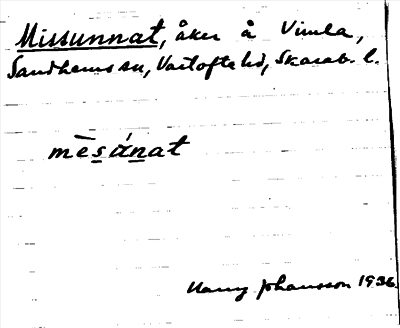 Missunnat, åker å Vimla,
Sandhems sn, Vartofta hd, Skarab. l.
mēsánat
Harry Johansson 1936.